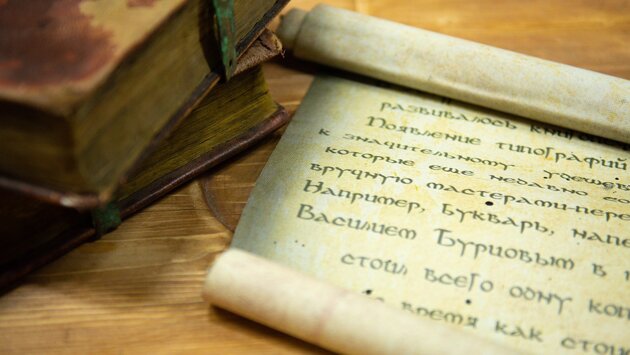 развивалось
Появление типографий
к значительному
которые еще недавно
вручную мастерами-пере
Например, Букварь, напе
Василием Бурцовым в
стоил всего одну коп
время как стои